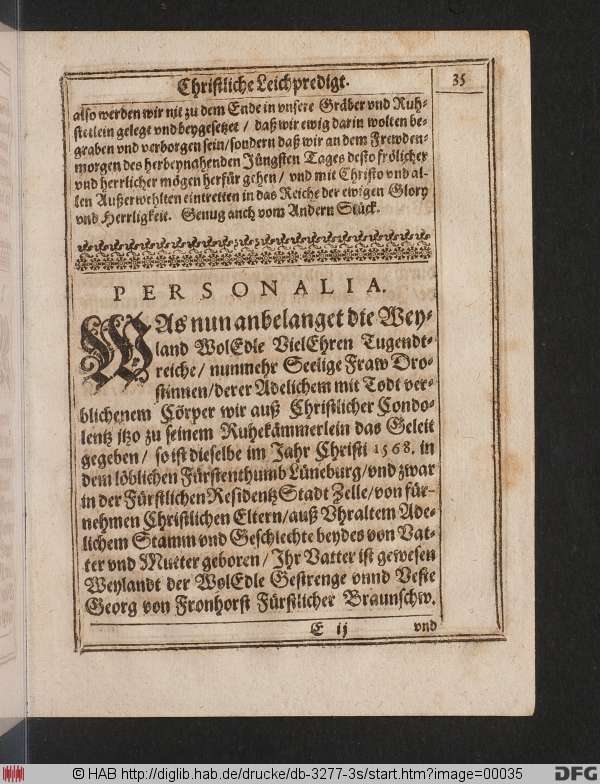 Christliche Leichpredigt.
35
also werden wir nit zu dem Ende in vnsere Gräber vnd Ruh-
stetlein gelegt vnd beygesetzet / daß wir ewig darin wolten be-
graben vnd verborgen sein / sondern daß wir an dem Frewden-
morgen des herbeynahenden Jüngsten Tages desto frölicher
vnd herrlicher mögen herfür gehen / vnd mit Christo vnd al-
len Außerwehlten eintretten in das Reiche der ewigen Glory
vnd Herrligkeit. Genug auch vom Andern Stück.
PERSONALIA.
WAs nun anbelanget die Wey-
land WolEdle VielEhren Tugendt-
reiche / nunmehr Seelige Fraw Dro-
stinnen / derer Adelichem mit Todt ver-
blichenem Cörper wir auß Christlicher Condo-
lentz jtzo zu seinem Ruhekämmerlein das Geleit
gegeben / so ist dieselbe im Jahr Christi 1568. in
dem löblichen Fürstenthumb Lüneburg / vnd zwar
in der Fürstlichen Residentz Stadt Zelle / von für-
nehmen Christlichen Eltern / auß Vhraltem Ade-
lichem Stamm vnd Geschlechte beydes von Vat-
ter vnd Mutter geboren / Jhr Vatter ist gewesen
Weylandt der WolEdle Gestrenge vnnd Veste
Georg von Fronhorst Fürstlicher Braunschw.
E ij
vnd
© HAB http://diglib.hab.de/drucke/db-3277-3s/start.htm?image=00035
DFG